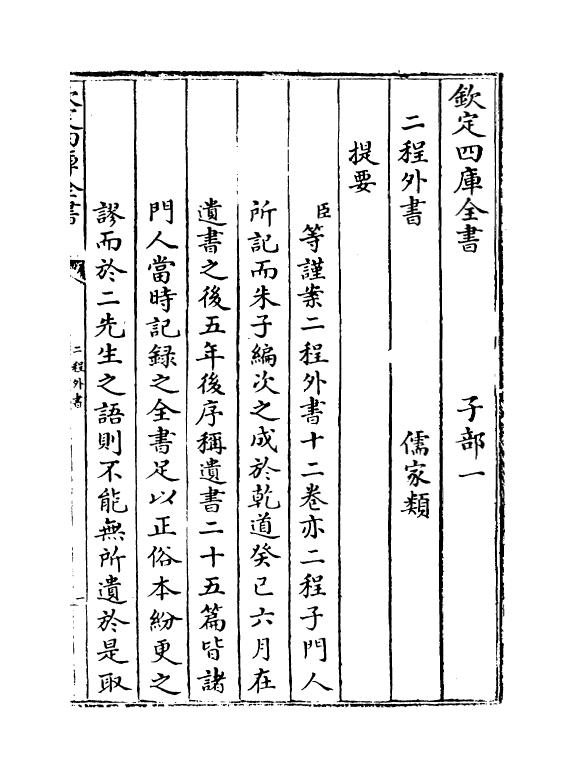 欽定四庫全書　子部一
二程外書　儒家類
提要
臣等謹案二程外書十二卷亦二程子門人
所記而朱子編次之成於乾道癸巳六月在
遺書之後五年後序稱遺書二十五篇皆諸
門人當時記録之全書足以正俗本紛更之
謬而於二先生之語則不能無所遺於是取
欽定四庫全書
二程外書